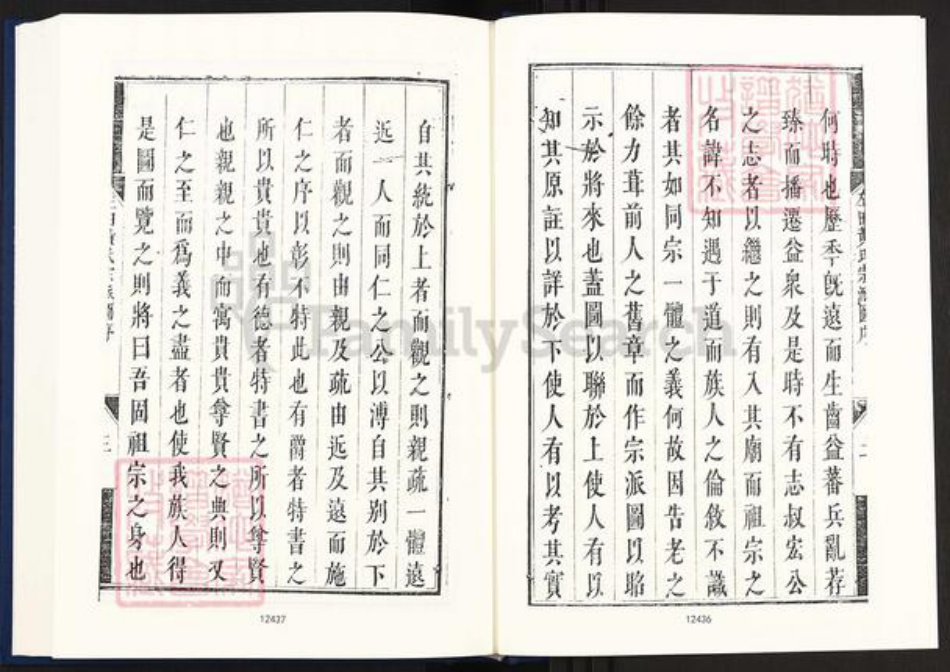 何時也歷季旣遠而生齒益蕃兵亂荐
臻而播遷益衆及是時不有志叔宏公
之志者以繼之則有入其廟而祖宗之
名諱不知遇于道而族人之倫敘不識
者其如同宗一體之義何故因告老之
餘力葺前人之舊章而作宗派圖以昭
示於將來也蓋圖以聯於上使人有以
知其原註以詳於下使人有以考其實
二
12436
自其統於上者而觀之則親疏一體遠
近一人而同仁之公以溥自其別於下
者而觀之則由親及疏由近及遠而施
仁之序以彰不特此也有爵者特書之
所以貴貴也有德者特書之所以尊賢
也親親之中而寓貴貴尊賢之典則又
仁之至而爲義之盡者也使我族人得
是圖而覽之則將曰吾固祖宗之身也
三
12437
FamilySearch